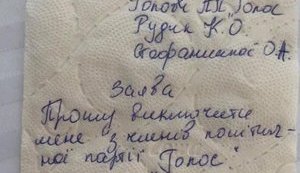 Голові ПП "Голос
Рудик К.О
Стефанишиної О.А.
Заява
Прошу виключити
мене з членів політич-
ної партії "Голос"